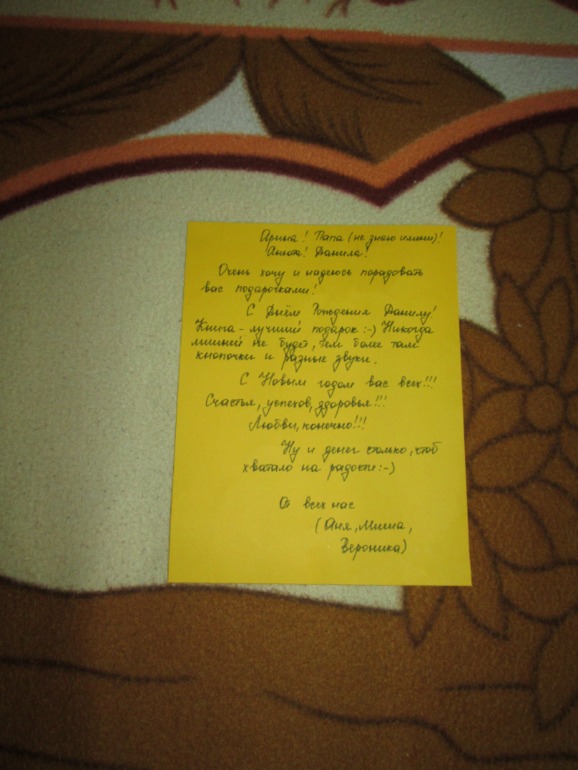 Арина! Папа (не знаю имени)!
Анюта! Данила!
Очень хочу и надеюсь порадовать
вас подарочками!
С Днём Рождения Данилу!
Книга - лучший подарок :-) Никогда
лишней не будет, тем более там
кнопочки и разные звуки.
С Новым годом вас всех!!!
Счастья, успехов, здоровья!!!
Любви, конечно!!!
Ну и денег столько, чтоб
хватало на радости :-)
От всех нас
(Аня, Миша,
Вероника)